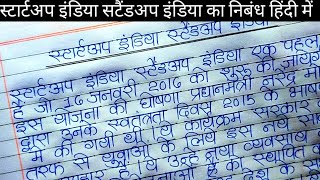 स्टार्टअप इंडिया सटैंडअप इंडिया का निबंध हिंदी में
स्टार्टअप इंडिया स्टैंडअप इंडिया
स्टार्टअप इंडिया स्टैंडअप इंडिया एक पहल
है जो 16 जनवरी 2016 को शुरू की जायेगी
इस योजना की घोषणा प्रधानमंत्री नरेंद्र मोदी
द्वारा उनके स्वतंत्रता दिवस 2015 के भाषण
में की गयी थी। ये कार्यक्रम सरकार की
तरफ से युवाओं के लिए इस नये
उन्हें नया व्यवसाय
को स्थापित
देश के